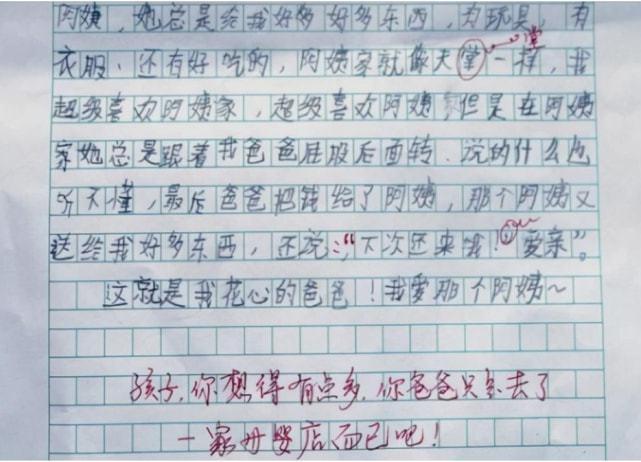 阿姨，她总是给我好多好多东西，有玩具，有
衣服、还有好吃的，阿姨家就像天堂一样，我
堂
超级喜欢阿姨家，超级喜欢阿姨，但是在阿姨
家她总是跟着我爸爸屁股后面转、说的什么也
听不懂，最后爸爸把钱给了阿姨，那个阿姨又
送给我好多东西，还说：“下次还来哦！爱亲”。
这就是我花心的爸爸！我爱那个阿姨～
孩子，你想得有点多，你爸爸只是去了
一家母婴店而已吧！